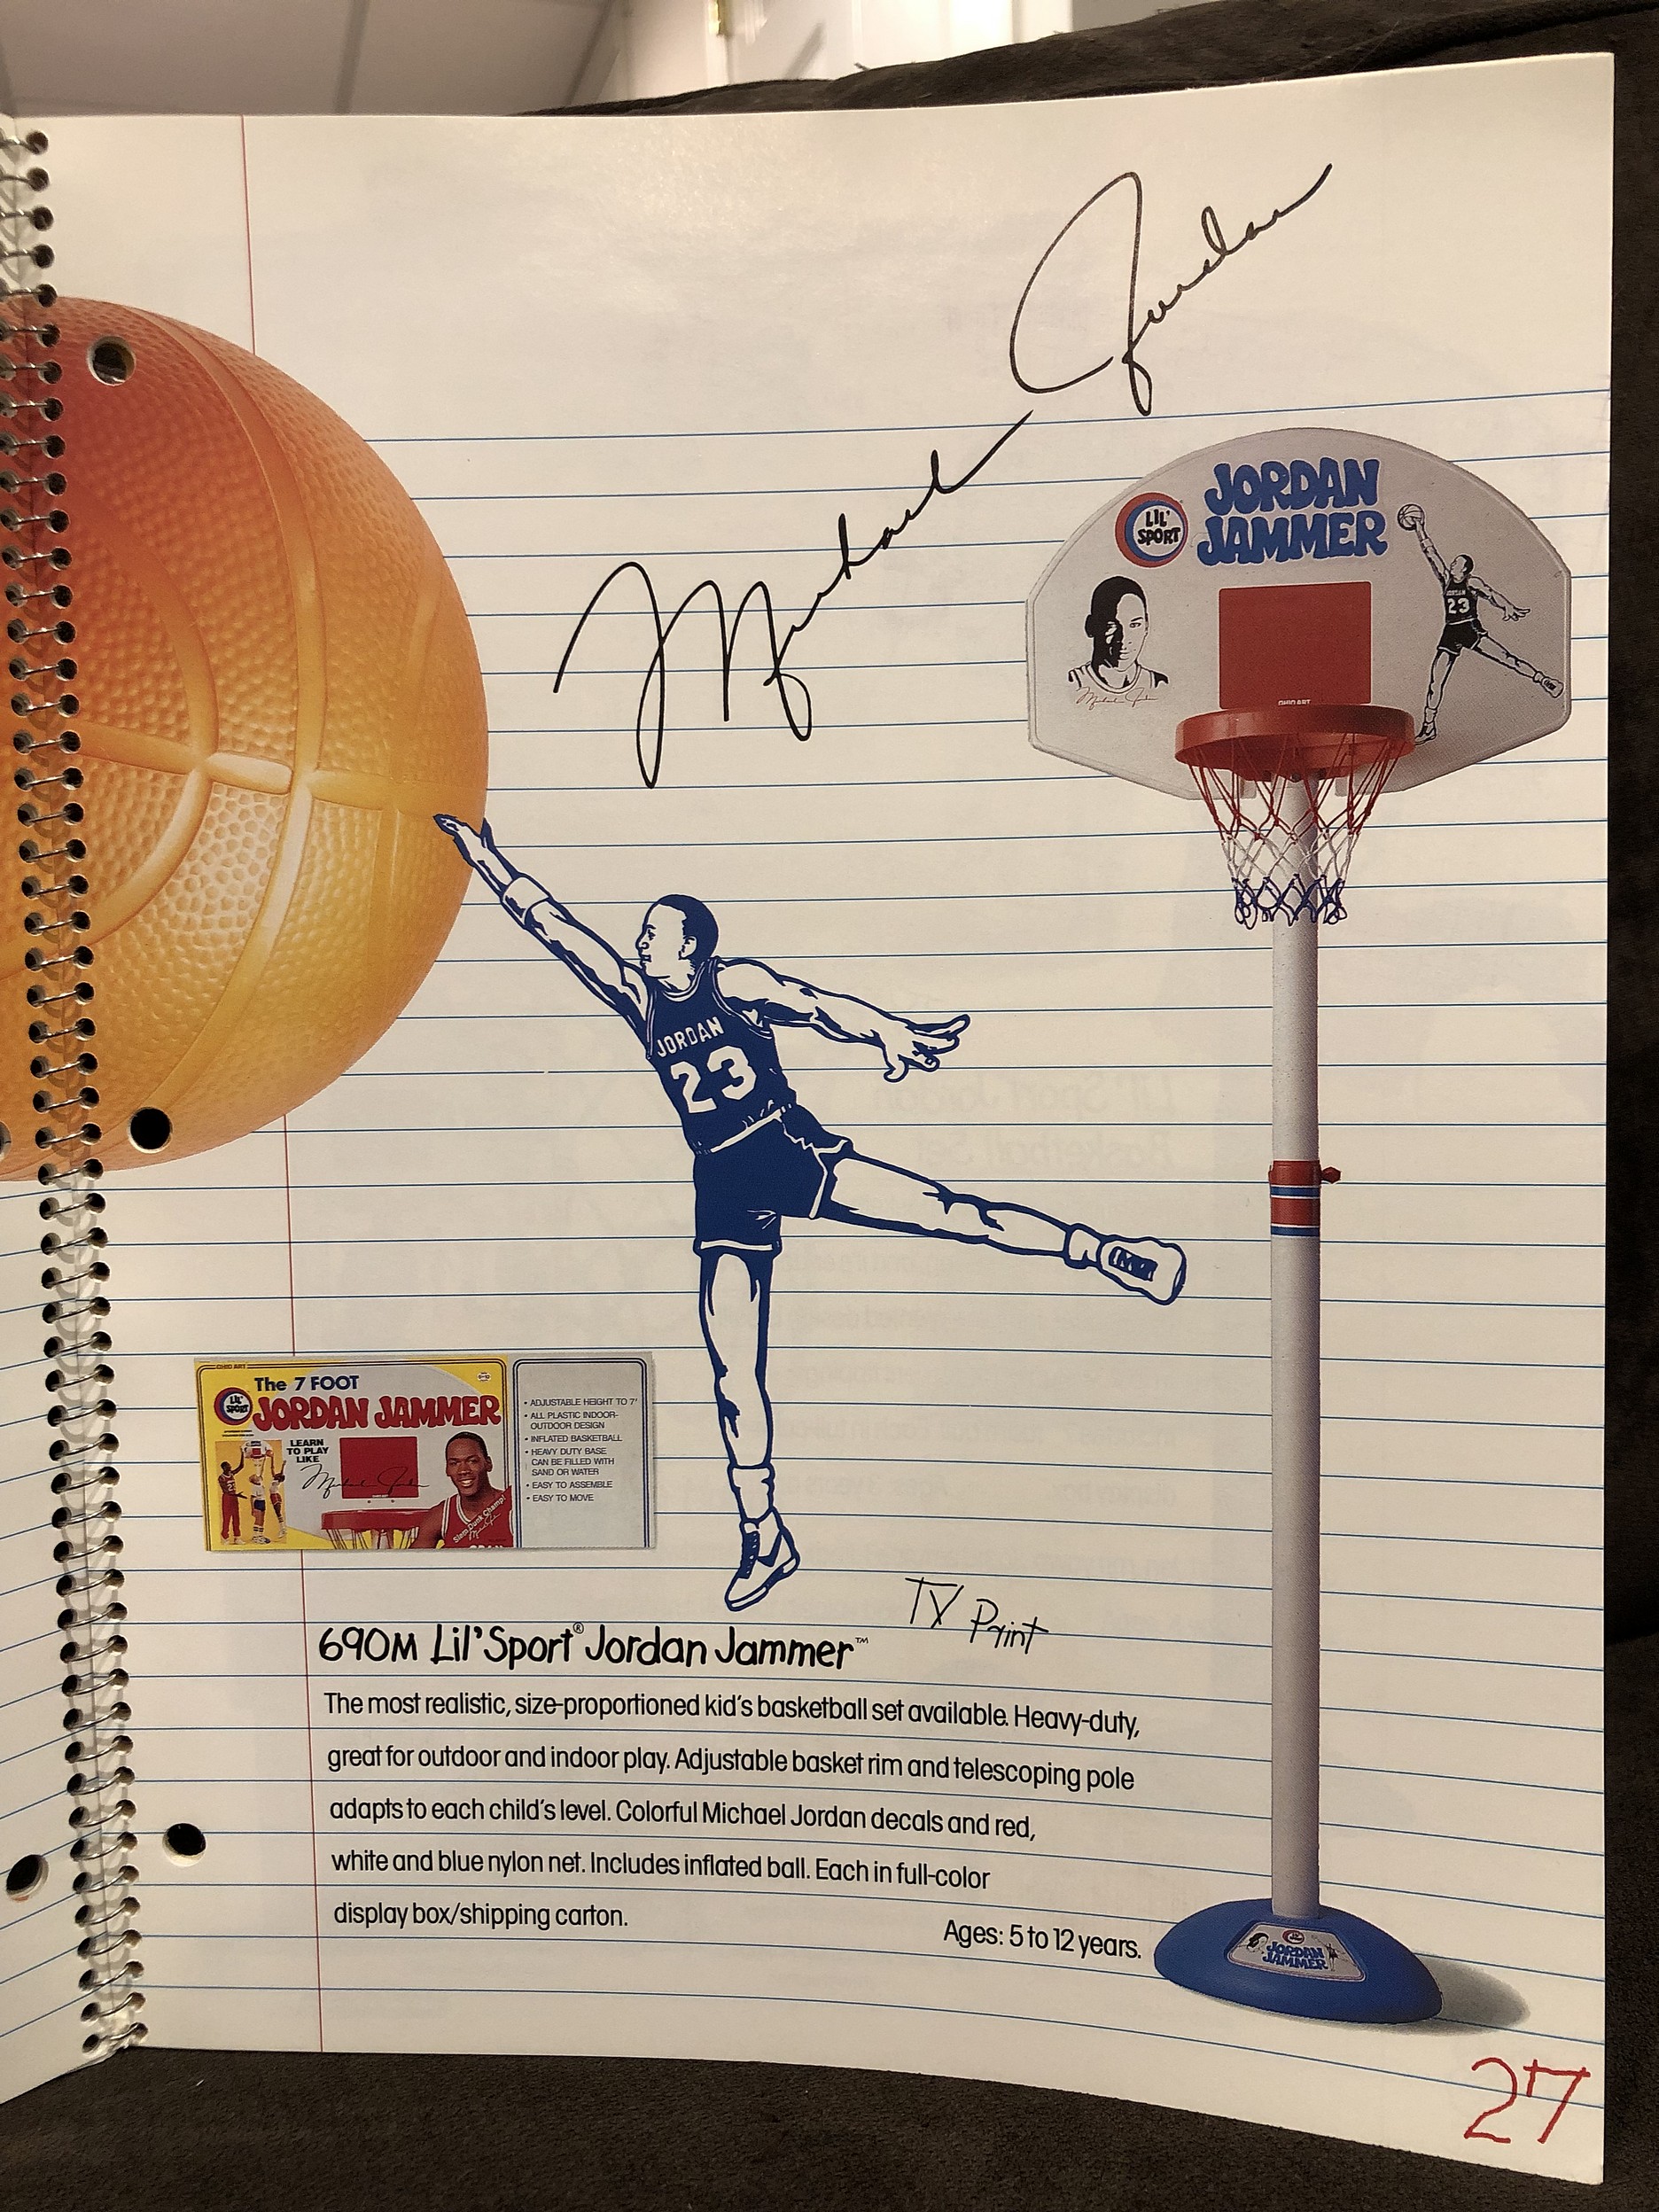 Michael Jordan
LIL' SPORT
JORDAN
JAMMER
JORDAN
23
Michael Jordan
OHIO ART
JORDAN
23
OHIO ART
The 7 FOOT
LIL' SPORT
JORDAN JAMMER
LEARN
TO PLAY
LIKE
Michael Jordan
Slam Dunk Champ!
• ADJUSTABLE HEIGHT TO 7'
• ALL PLASTIC INDOOR-
OUTDOOR DESIGN
• INFLATED BASKETBALL
• HEAVY DUTY BASE
CAN BE FILLED WITH
SAND OR WATER
• EASY TO ASSEMBLE
• EASY TO MOVE
TV Print
690M Lil' Sport® Jordan Jammer™
The most realistic, size-proportioned kid's basketball set available. Heavy-duty,
great for outdoor and indoor play. Adjustable basket rim and telescoping pole
adapts to each child's level. Colorful Michael Jordan decals and red,
white and blue nylon net. Includes inflated ball. Each in full-color
display box/shipping carton.
Ages: 5 to 12 years.
JORDAN
JAMMER
27